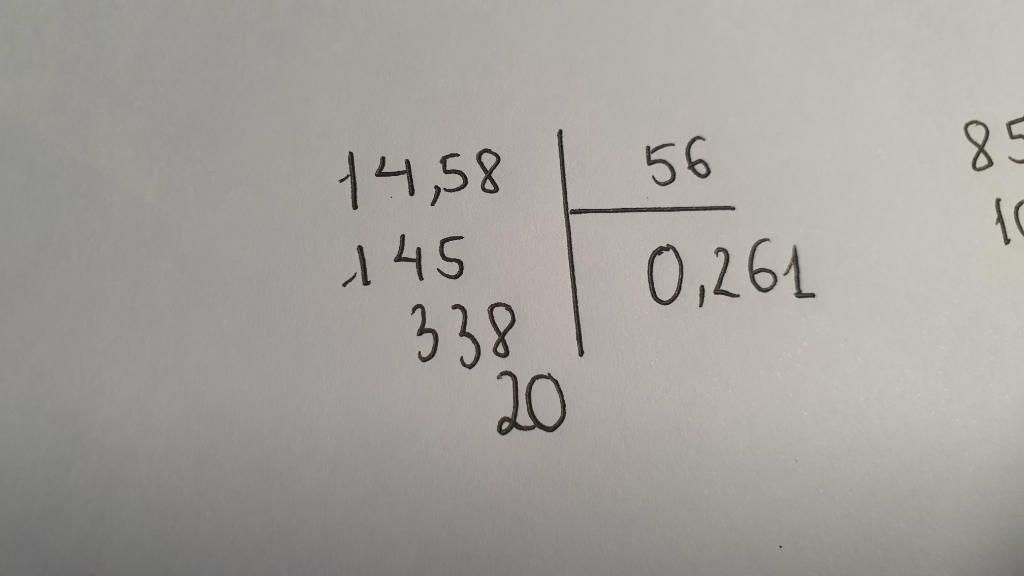 14,58 56
145 0,261
338
20
85
10